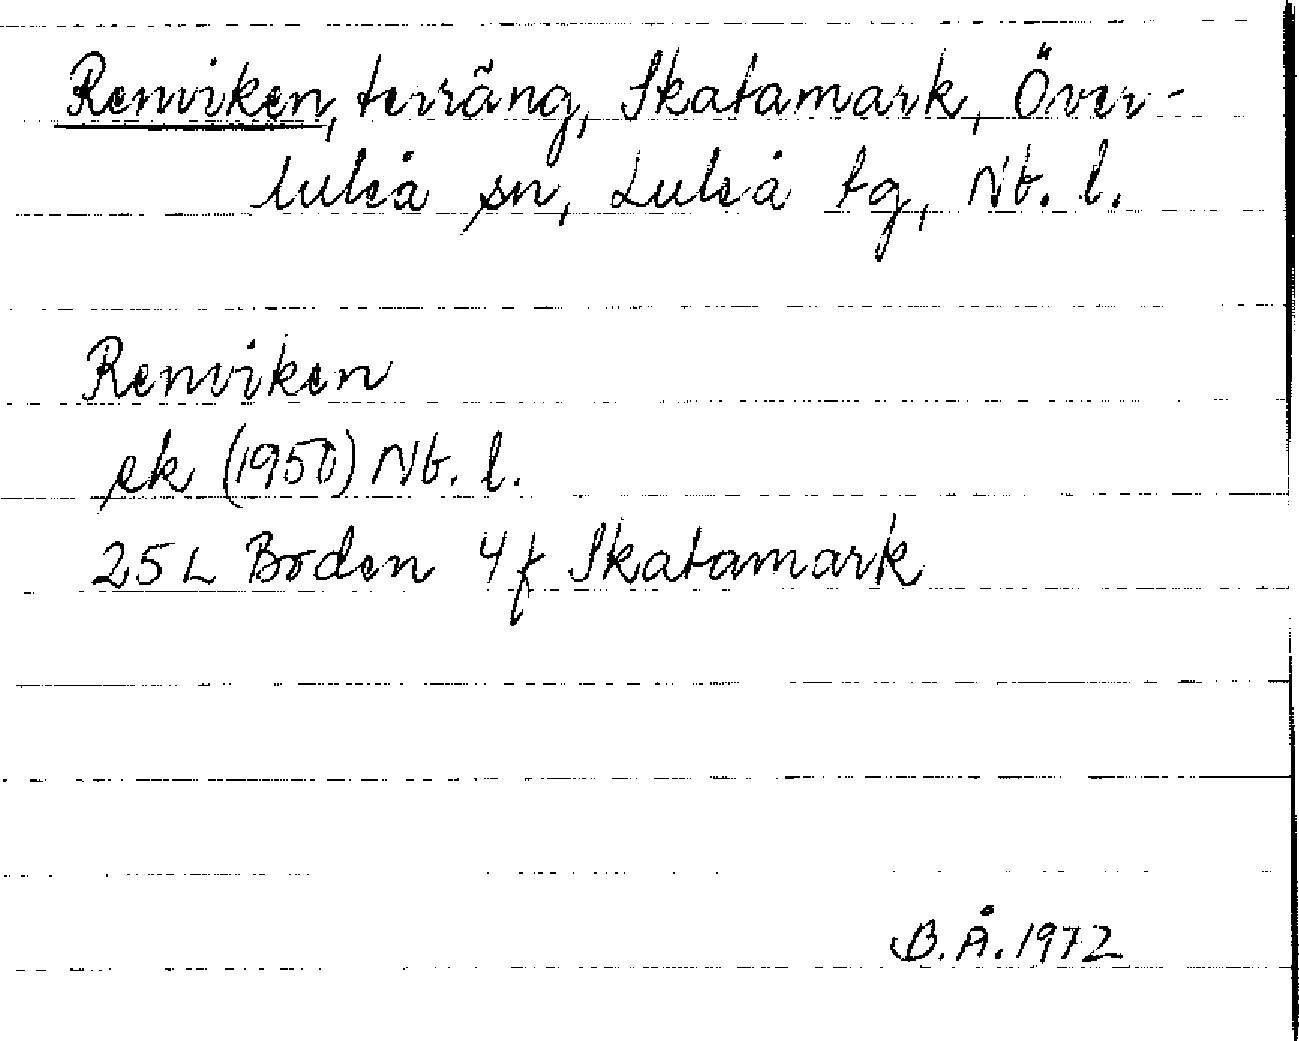 Renviken, terräng, Skatamark, Över-
luleå sn, Luleå tg, Nb. l.
Renviken
ek (1950) Nb. l.
25 L Boden 4f Skatamark
B.Å. 1972